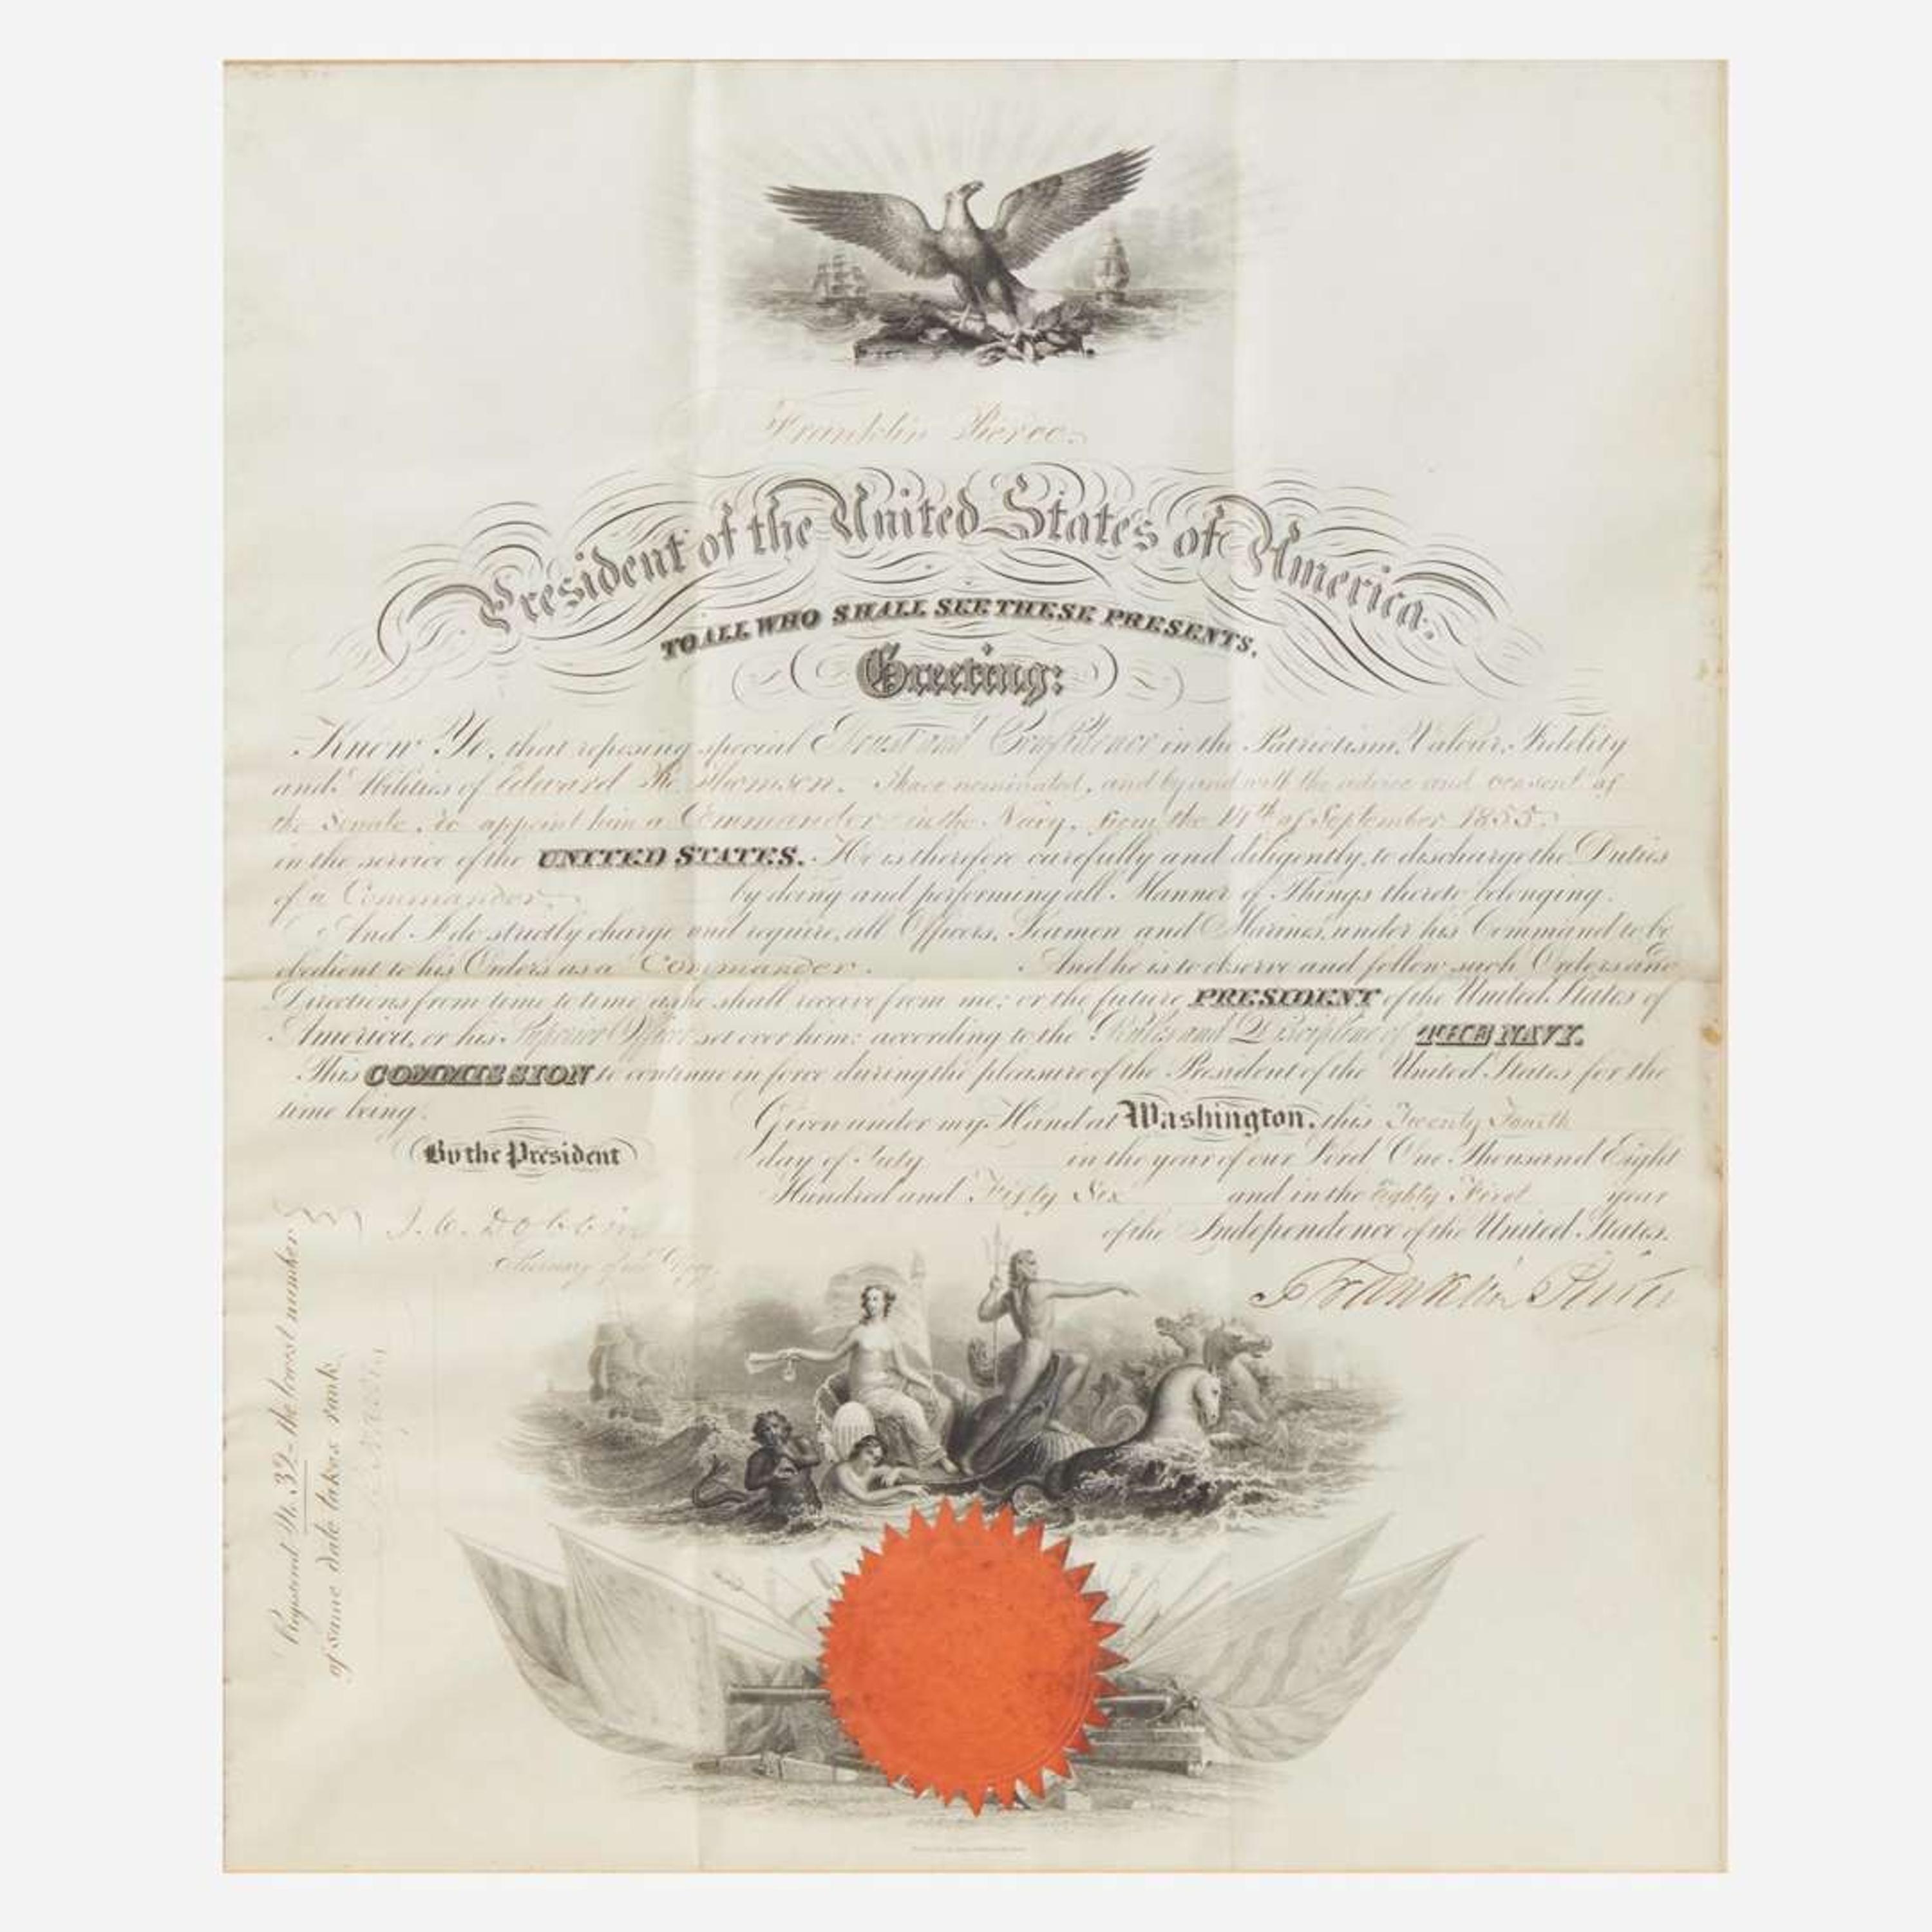 Franklin Pierce
President of the United States of America.
TO ALL WHO SHALL SEE THESE PRESENTS.
Greeting:
Know Ye, that reposing special Trust and Confidence in the Patriotism, Valour, Fidelity
and Abilities of Edward R. Thomson. I have nominated, and by and with the advice and consent of
the Senate, do appoint him a Commander in the Navy, from the 14th of September 1855.
in the service of the UNITED STATES. He is therefore carefully and diligently to discharge the Duties
of a Commander. by doing and performing all Manner of Things thereto belonging.
And I do strictly charge and require all Officers, Seamen and Marines, under his Command to be
obedient to his Orders as a Commander. And he is to observe and follow such Orders and
Directions from time to time as he shall receive from me, or the future PRESIDENT of the United States of
America, or his Superior Officer set over him; according to the Rules and Discipline of THE NAVY.
This COMMISSION to continue in force during the pleasure of the President of the United States for the
time being.
Given under my Hand at Washington, this Twenty Fourth
By the President
day of July in the year of our Lord One Thousand Eight
Hundred and Fifty Six and in the Eighty First year
of the Independence of the United States.
J. C. Dobbin
Secretary of the Navy
Franklin Pierce
Registered No. 32 - the lowest number
of same date takes rank.